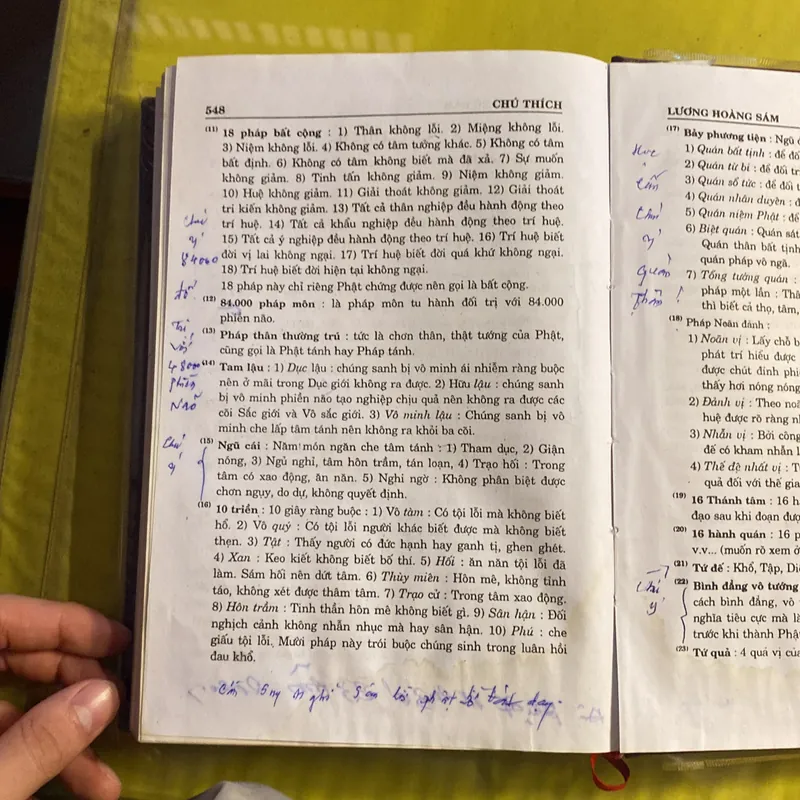 548 CHÚ THÍCH
(11) 18 pháp bất cộng : 1) Thân không lỗi. 2) Miệng không lỗi.
3) Niệm không lỗi. 4) Không có tâm tưởng khác. 5) Không có tâm
bất định. 6) Không có tâm không biết mà đã xả. 7) Sự muốn
không giảm. 8) Tinh tấn không giảm. 9) Niệm không giảm.
10) Huệ không giảm. 11) Giải thoát không giảm. 12) Giải thoát
tri kiến không giảm. 13) Tất cả thân nghiệp đều hành động theo
trí huệ. 14) Tất cả khẩu nghiệp đều hành động theo trí huệ.
15) Tất cả ý nghiệp đều hành động theo trí huệ. 16) Trí huệ biết
đời vị lai không ngại. 17) Trí huệ biết đời quá khứ không ngại.
18) Trí huệ biết đời hiện tại không ngại.
18 pháp này chỉ riêng Phật chứng được nên gọi là bất cộng.
(12) 84.000 pháp môn : là pháp môn tu hành đối trị với 84.000
phiền não.
(13) Pháp thân thường trú : tức là chơn thân, thật tướng của Phật,
cũng gọi là Phật tánh hay Pháp tánh.
(14) Tam lậu : 1) Dục lậu : chúng sanh bị vô minh ái nhiễm ràng buộc
nên ở mãi trong Dục giới không ra được. 2) Hữu lậu : chúng sanh
bị vô minh phiền não tạo nghiệp chịu quả nên không ra được các
cõi Sắc giới và Vô sắc giới. 3) Vô minh lậu : Chúng sanh bị vô
minh che lấp tâm tánh nên không ra khỏi ba cõi.
(15) Ngũ cái : Năm món ngăn che tâm tánh : 1) Tham dục, 2) Giận
nóng, 3) Ngủ nghỉ, tâm hôn trầm, tán loạn, 4) Trạo hối : Trong
tâm có xao động, ăn năn. 5) Nghi ngờ : Không phân biệt được
chơn ngụy, do dự, không quyết định.
(16) 10 triền : 10 giây ràng buộc : 1) Vô tàm : Có tội lỗi mà không biết
hổ. 2) Vô quý : Có tội lỗi người khác biết được mà không biết
thẹn. 3) Tật : Thấy người có đức hạnh hay ganh tị, ghen ghét.
4) Xan : Keo kiết không biết bố thí. 5) Hối : ăn năn tội lỗi đã
làm. Sám hối nên dứt tâm. 6) Thùy miên : Hôn mê, không tỉnh
táo, không xét được thâm tâm. 7) Trạo cử : Trong tâm xao động.
8) Hôn trầm : Tinh thần hôn mê không biết gì. 9) Sân hận : Đối
nghịch cảnh không nhẫn nhục mà hay sân hận. 10) Phú : che
giấu tội lỗi. Mười pháp này trói buộc chúng sinh trong luân hồi
đau khổ.
Chú
ý
84000
đối
Trị
với
48000
phiền
Não
Chú
ý
LƯƠNG HOÀNG SÁM
(17) Bảy phương tiện : Ngũ
1) Quán bất tịnh : để đối
2) Quán từ bi : để đối tr
3) Quán sổ tức : để đối t
4) Quán nhân duyên : đ
5) Quán niệm Phật : để
6) Biệt quán : Quán sát
Quán thân bất tịnh
quán pháp vô ngã.
7) Tổng tướng quán :
pháp một lần : Thâ
thì biết cả thọ, tâm,
(18) Pháp Noãn đảnh :
1) Noãn vị : Lấy chỗ b
phát trí hiểu được
được chút đỉnh phi
thấy hơi nóng nóng
2) Đảnh vị : Theo noã
huệ được rõ ràng n
3) Nhẫn vị : Bởi công
đế có kham nhẫn l
4) Thế đệ nhất vị : T
quả đối với thế gia
(19) 16 Thánh tâm : 16 h
đạo sau khi đoạn đượ
(20) 16 hành quán : 16 p
v.v... (muốn rõ xem ở
(21) Tứ đế : Khổ, Tập, Diệ
(22) Bình đẳng vô tướng
cách bình đẳng, vô
nghĩa tiêu cực mà là
trước khi thành Phậ
(23) Tứ quả : 4 quả vị củ
Học
Chú
ý
Quán
Chú
ý